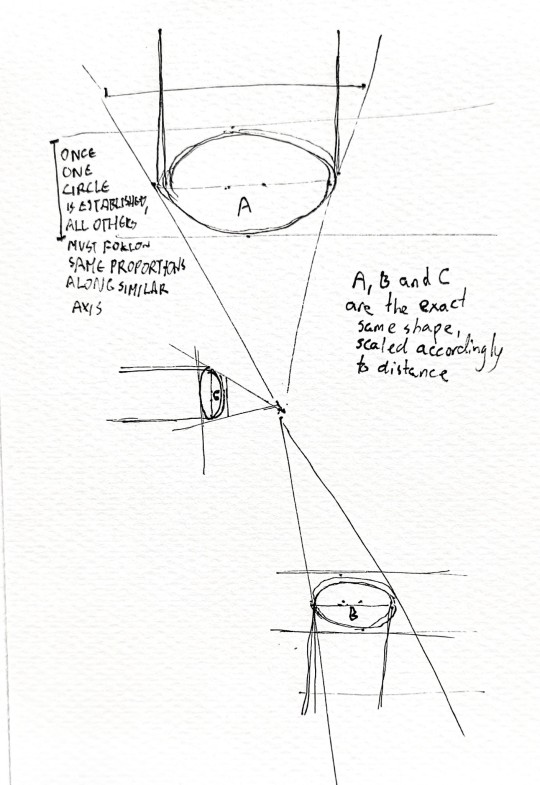 ONCE
ONE
CIRCLE
IS ESTABLISHED,
ALL OTHERS
MUST FOLLOW
SAME PROPORTIONS
ALONG SIMILAR
AXIS
A
A, B and C
are the exact
same shape,
scaled accordingly
to distance
C
B